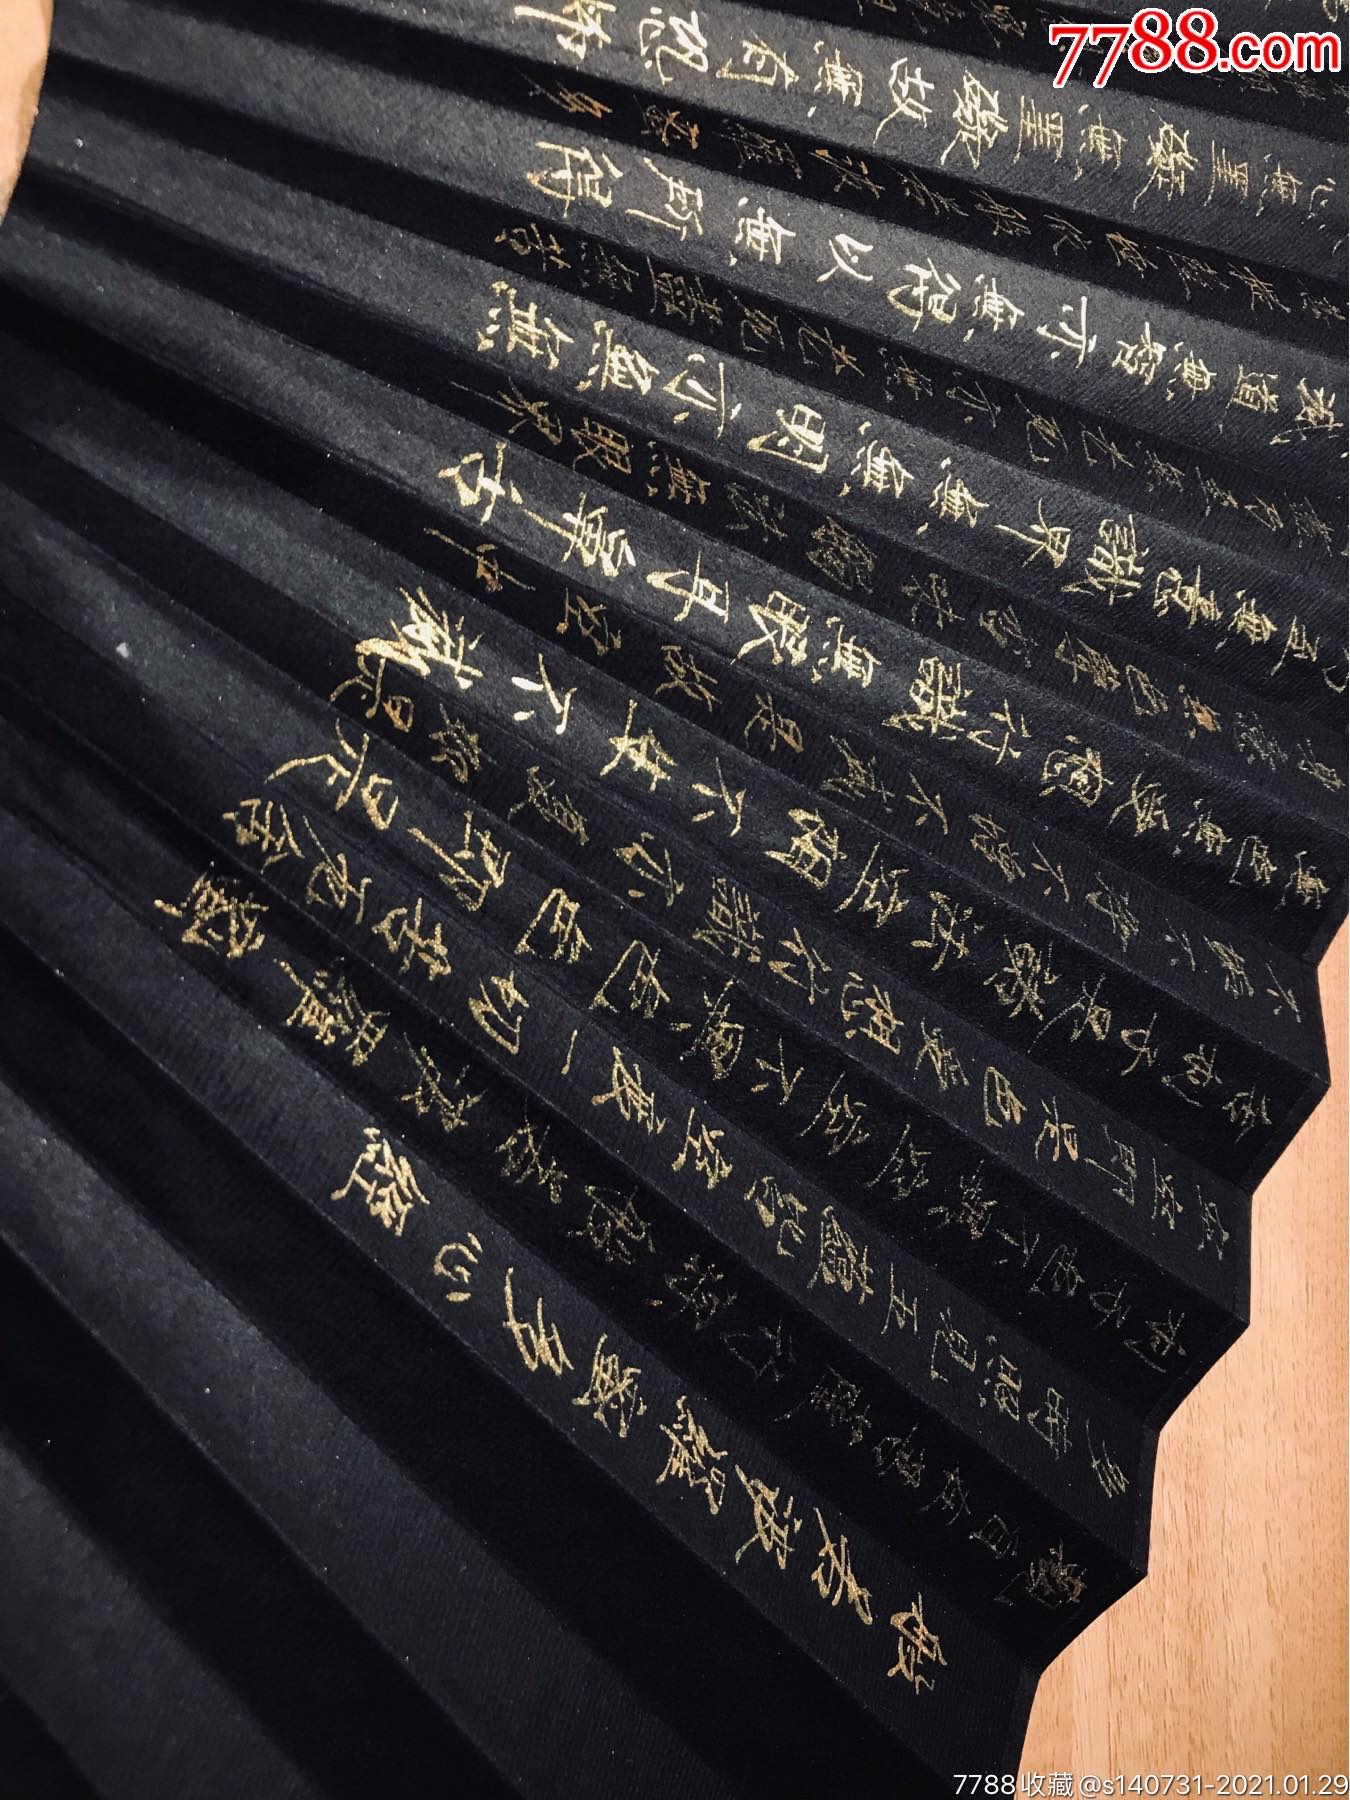 般若波羅蜜多心經
觀自在菩薩行深般若波羅蜜
多時照見五蘊皆空度一切苦厄舍
利子色不異空空不異色色即是
空即是色受想行識亦復如是
舍利子是諸法空相不生不滅
不垢不淨不增不減是故空中
無色無受想行識無眼耳鼻舌
身意無色聲香味觸法無眼界
乃至無意識界無無明亦無無
盡乃至無老死亦無老死盡無苦
滅道無智亦無得以無所得
提薩埵依般若波羅蜜多
心無罣礙無罣礙故無有恐怖
7788.com
7788收藏@s140731-2021.01.29